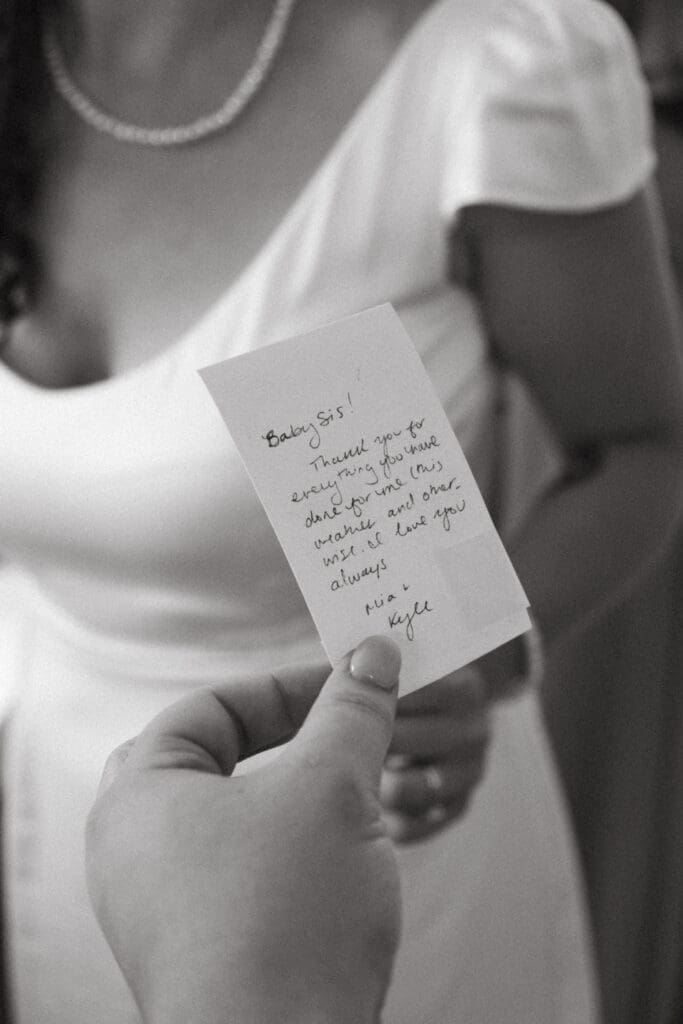 Baby Sis!
Thank you for
everything you have
done for me this
weather and other-
wise. I love you
always
Mia +
Kyle